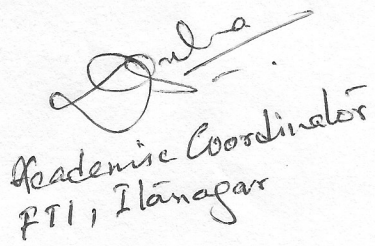 Academic Coordinator
FTI, Itanagar